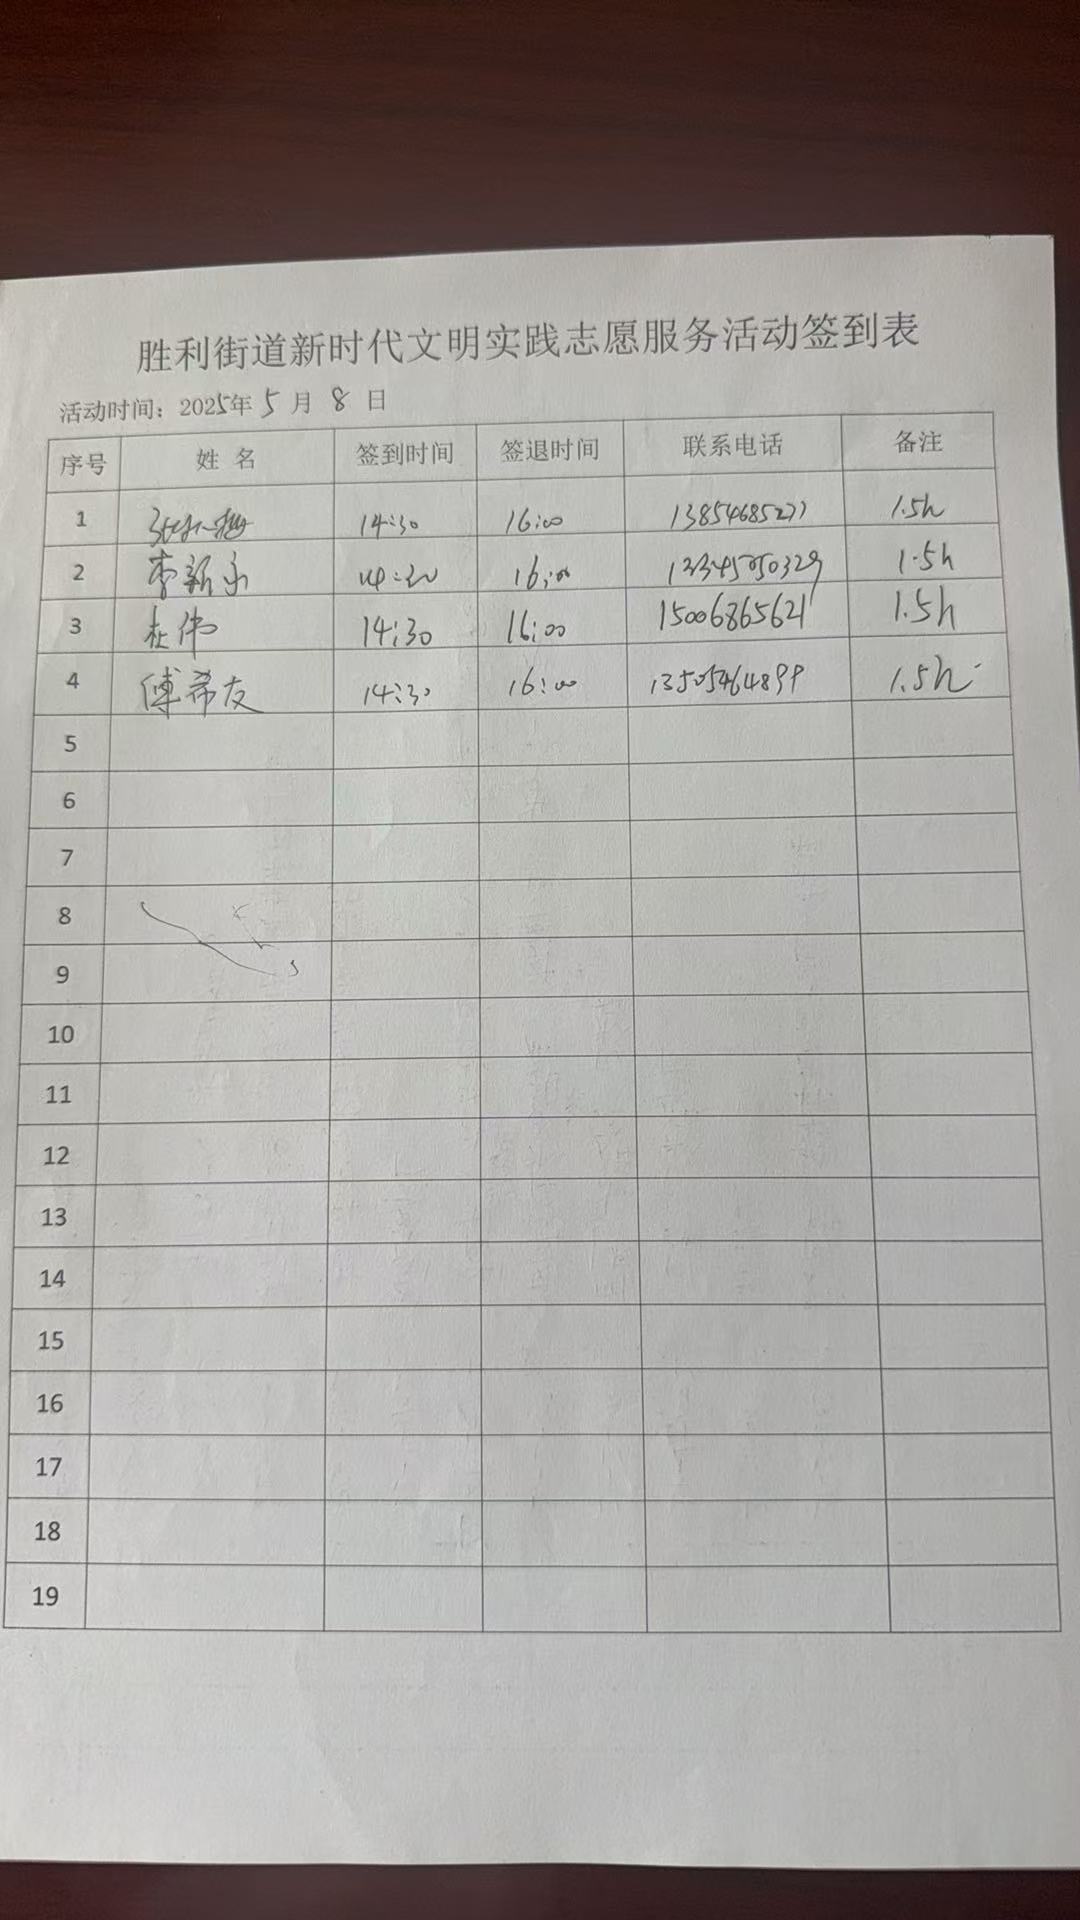 胜利街道新时代文明实践志愿服务活动签到表
活动时间：2025年 5 月 8 日
序号 姓 名 签到时间 签退时间 联系电话 备注
1 14:30 16:00 13854685277 1.5h
2 李新 14:30 16:00 13345050329 1.5h
3 杜伟 14:30 16:00 15006865621 1.5h
4 傅希友 14:30 16:00 13505464899 1.5h
5
6
7
8
9
10
11
12
13
14
15
16
17
18
19